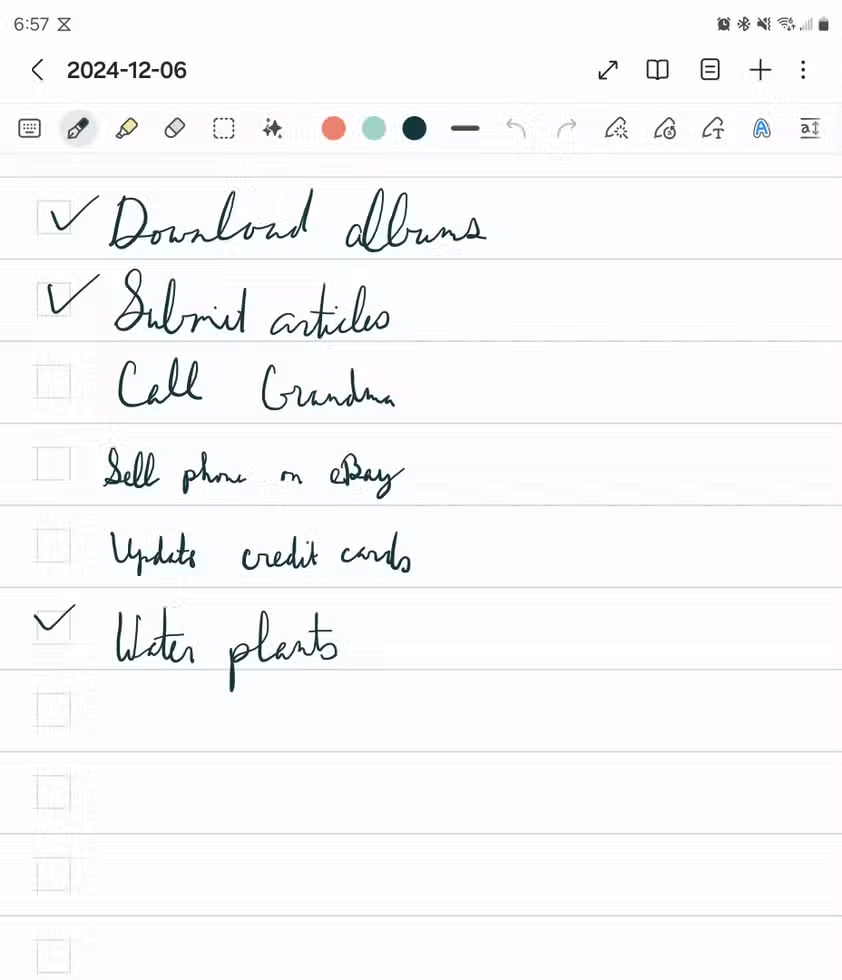 6:57
2024-12-06
Download albums
Submit articles
Call Grandma
Sell phone on eBay
Update credit cards
Water plants